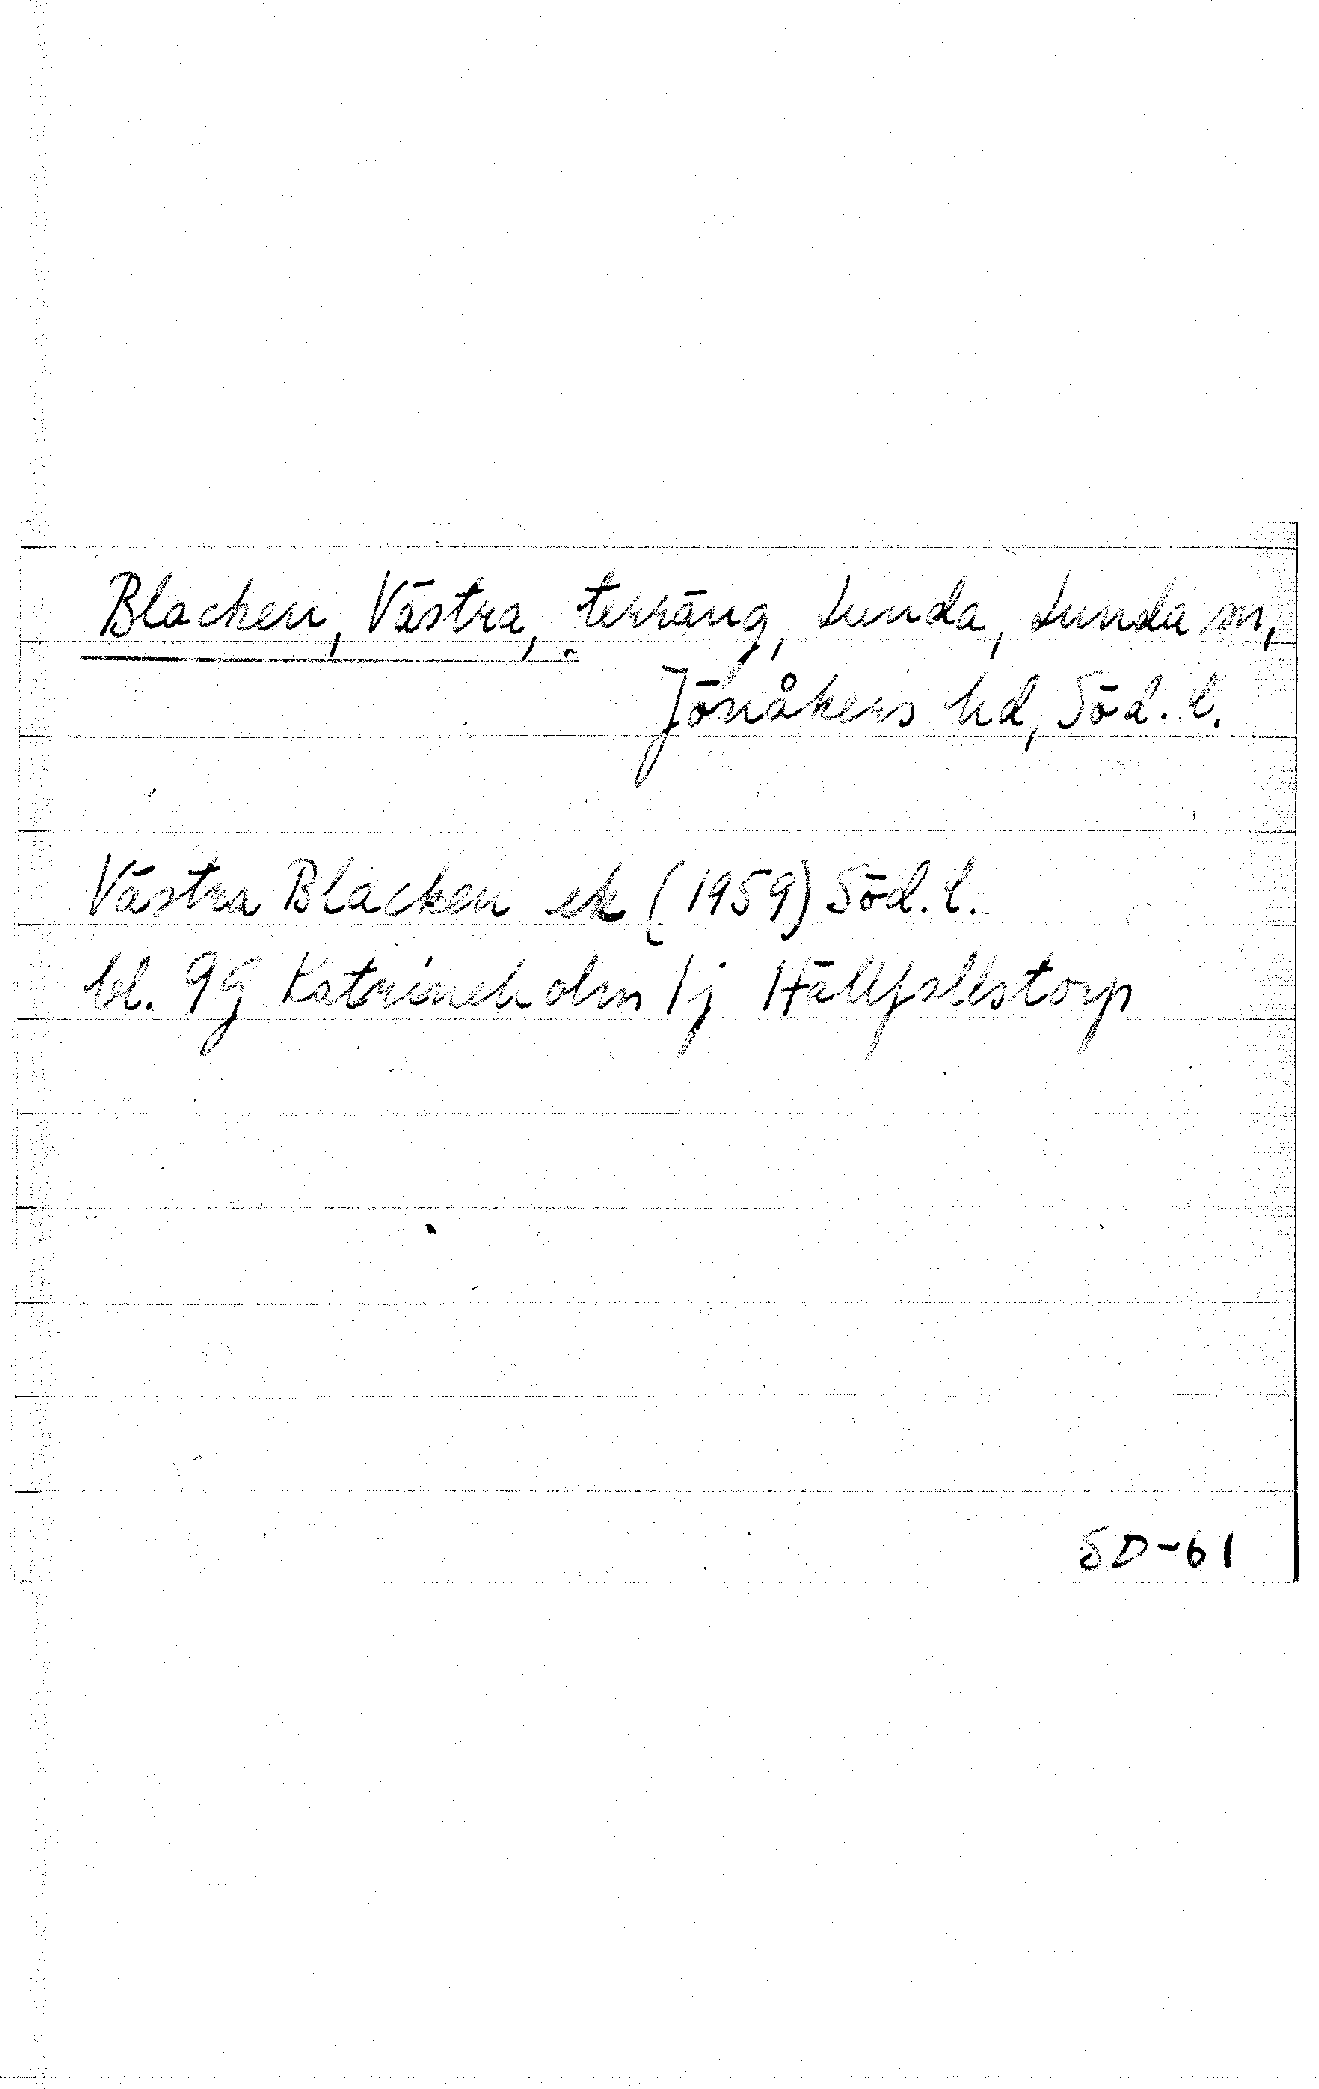 Blacken, Västra, terräng, Lunda, Lunda sn,
Jönåkers hd, Söd. l.
Västra Blacken ek (1959) Söd. l.
bl. 9G Katrineholm 1j Hällfallstorp
SD-61